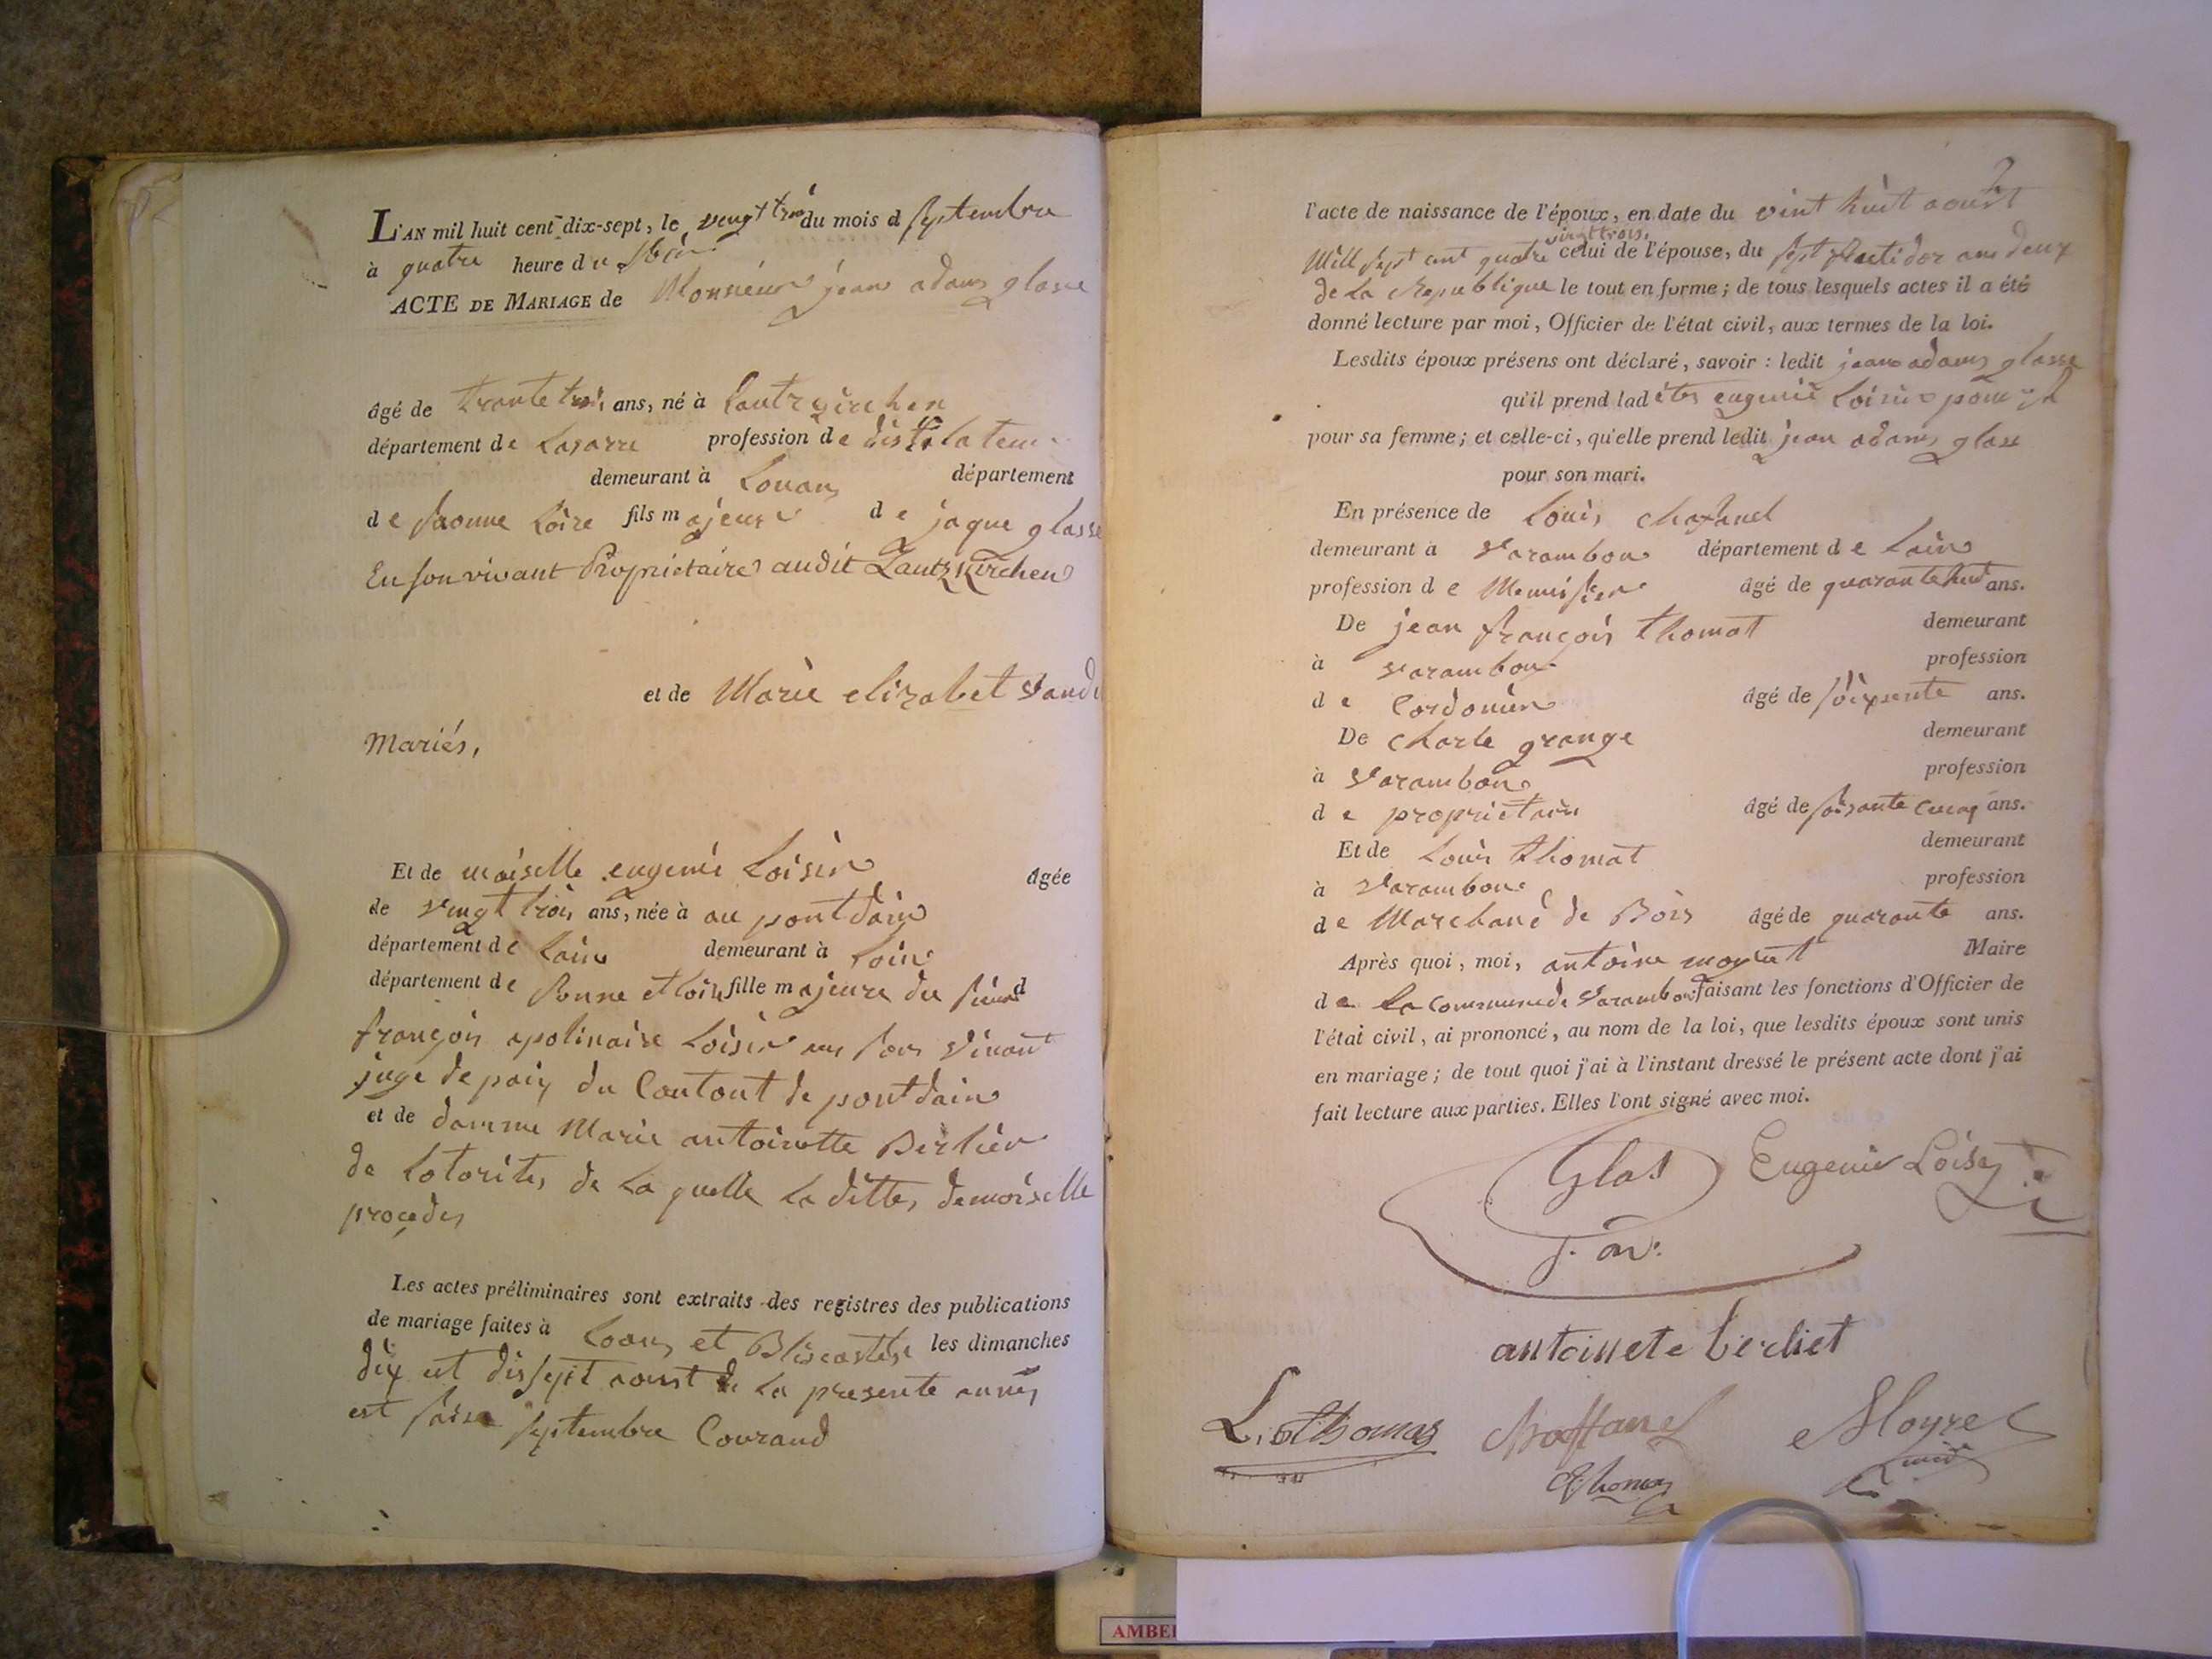 L'AN mil huit cent dix-sept, le vengt trois du mois d septembre
à quatre heure du soir
ACTE DE MARIAGE de Monsieur jean adam glasse
âgé de trante trois ans, né à Lautzgirchen
département de Lasarre profession de distilateur
demeurant à Louans département
de saonne Loire fils majeur de jaque glasse
En son vivant Propriétaire audit Lautzkirchen
et de Marie elizabet
Mariés,
Et de moiselle eugenie Loisir agée
de vingt trois ans, née à au pontdain
département de Lain demeurant à
département de sonne et loire fille majeure du
françois apolinaire Loisir en son vivant
juge de paix du Contont de pontdain
et de damme Marie antoinette Berlier
de Lotorites de La quelle La dittes demoiselle
procedes
Les actes préliminaires sont extraits des registres des publications
de mariage faites à Louans et Bliscastel les dimanches
dix et dissept aoust de La presente année
est septembre Courand
2
l'acte de naissance de l'époux, en date du vint huit aoust
vingttrois,
Mill sept cent quatre celui de l'épouse, du sept ans deux
de La Republique le tout en forme; de tous lesquels actes il a été
donné lecture par moi, Officier de l'état civil, aux termes de la loi.
Lesdits époux présens ont déclaré, savoir : ledit jean adams glasse
qu'il prend ladites eugenie Loisir pour
pour sa femme; et celle-ci, qu'elle prend ledit jean adams glasse
pour son mari.
En présence de Louis chafanel
demeurant à Varambon département de Lain
profession de Menuisier âgé de quarante huit ans.
De jean françois thomat demeurant
à Varambon profession
de Cordonier âgé de soixsente ans.
De charle grange demeurant
à Varambon profession
de proprietaire âgé de soisante cinq ans.
Et de Louis thomat demeurant
à Varambon profession
de Marchand de Bois âgé de quarante ans.
Après quoi, moi, antoine moyret Maire
de La Commune de Varambon faisant les fonctions d'Officier de
l'état civil, ai prononcé, au nom de la loi, que lesdits époux sont unis
en mariage; de tout quoi j'ai à l'instant dressé le présent acte dont j'ai
fait lecture aux parties. Elles l'ont signé avec moi.
Glas Eugenie Loisir
antoinete berliet
L. Thomas Chaffanel Moyret
Thomas maire
AMBE